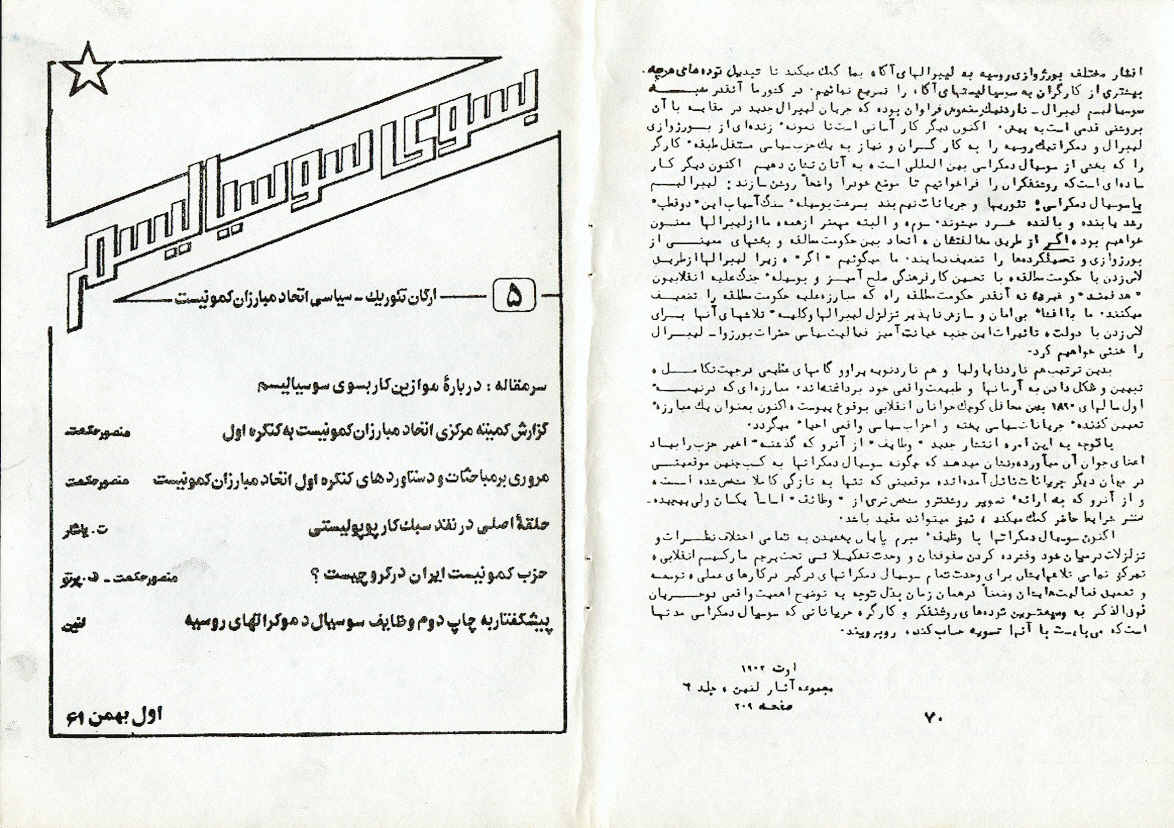 بسوی سوسیالیسم
۵
ارگان تئوریک - سیاسی اتحاد مبارزان کمونیست
سرمقاله : دربارهٔ موازین کار بسوی سوسیالیسم
گزارش کمیته مرکزی اتحاد مبارزان کمونیست به کنگره اول منصور حکمت
مروری بر مباحثات و دستاوردهای کنگره اول اتحاد مبارزان کمونیست منصور حکمت
حلقهٔ اصلی در نقد سبک کار پوپولیستی ت.
حزب کمونیست ایران در گرو چیست ؟ منصور حکمت - ف. پرتو
پیشگفتار به چاپ دوم وظایف سوسیال دموکراتهای روسیه لنین
اول بهمن ۶۱
اقشار مختلف بورژوازی روسیه به لیبرالهای آگاه بما کمک میکند تا تبدیل توده‌های هرچه
بیشتری از کارگران به سوسیالیستهای آگاه را تسریع نمائیم. در کشور ما آنقدر شبه
سوسیالیسم لیبرال - ناردنیک مغشوش فراوان بوده که جریان لیبرال جدید در مقایسه با آن
بروشنی قدمی است به پیش. اکنون دیگر کار آسانی است تا نمونه زنده‌ای از بورژوازی
لیبرال و دمکراتیک روسیه را به کارگران و نیاز به یک حزب سیاسی مستقل طبقه کارگر
را که بخشی از سوسیال دمکراسی بین المللی است، به آنان نشان دهیم اکنون دیگر کار
ساده‌ای است که روشنفکران را فراخوانیم تا موضع خود را واضحاً روشن سازند: لیبرالیسم
یا سوسیال دمکراسی؛ تئوریها و جریانات نیم بند بسرعت بوسیله سنگ آسیاب این "دو قطب"
رشد یابنده و بالنده خرد میشوند. سوم، و البته مهمتر از همه، ما از لیبرالها ممنون
خواهیم بود، اگر از طریق مخالفتشان، اتحاد بین حکومت مطلقه و بخشهای معینی از
بورژوازی و تحصیلکرده‌ها را تضعیف نمایند. ما میگوئیم "اگر"، زیرا لیبرالها از طریق
لاس زدن با حکومت مطلقه، با تحسین کار فرهنگی صلح آمیز و بوسیله جنگ علیه انقلابیون
"هدفمند" و غیره، نه آنقدر حکومت مطلقه را، که مبارزه علیه حکومت مطلقه را تضعیف
میکنند. ما با افشاء بی‌امان و سازش ناپذیر تزلزل لیبرالها و کلیه تلاشهای آنها برای
لاس زدن با دولت، تاثیرات این جنبه خیانت آمیز فعالیت سیاسی حضرات بورژوا - لیبرال
را خنثی خواهیم کرد.
بدین ترتیب هم ناردنایا ولیا و هم ناردنویه پراوو گامهای عظیمی در جهت تکامل،
تبیین و شکل دادن به آرمانها و طبیعت واقعی خود برداشته‌اند. مبارزه‌ای که در نیمه
اول سالهای ۱۸۹۰ بین محافل کوچک جوانان انقلابی بوقوع پیوست، اکنون بعنوان یک مبارزه
تعیین کننده جریانات سیاسی پخته و احزاب سیاسی واقعی احیا میگردد.
با توجه به این امر، انتشار جدید "وظایف" از آنرو که گذشته اخیر حزب را بیاد
اعضای جوان آن میآورد، و نشان میدهد که چگونه سوسیال دمکراتها به کسب چنین موقعیتی
در میان دیگر جریانات نائل آمده‌اند، موقعیتی که تنها به تازگی کاملا مشخص شده است،
و از آنرو که به ارائه تصویر روشنتر و مشخص‌تری از "وظائف" اساساً یکسان ولی پیچیده‌
تر شرایط حاضر کمک میکند، نیز میتواند مفید باشد.
اکنون سوسیال دمکراتها با وظیفه مبرم پایان بخشیدن به تمامی اختلاف نظرات و
تزلزلات در میان خود، و فشرده کردن صفوفشان و وحدت تشکیلاتی تحت پرچم مارکسیسم انقلابی،
تمرکز تمامی تلاشهایشان برای وحدت تمام سوسیال دمکراتهای درگیر در کارهای عملی، توسعه
و تعمیق فعالیت‌هایشان و ضمناً در همان زمان بذل توجه به توضیح اهمیت واقعی دو جریان
فوق الذکر به وسیعترین توده‌های روشنفکر و کارگر، جریاناتی که سوسیال دمکراسی مدتها
است که می‌بایست با آنها تسویه حساب کند، روبرویند.
اوت ۱۹۰۲
مجموعه آثار لنین، جلد ۶
صفحه ۲۰۹
۷۰